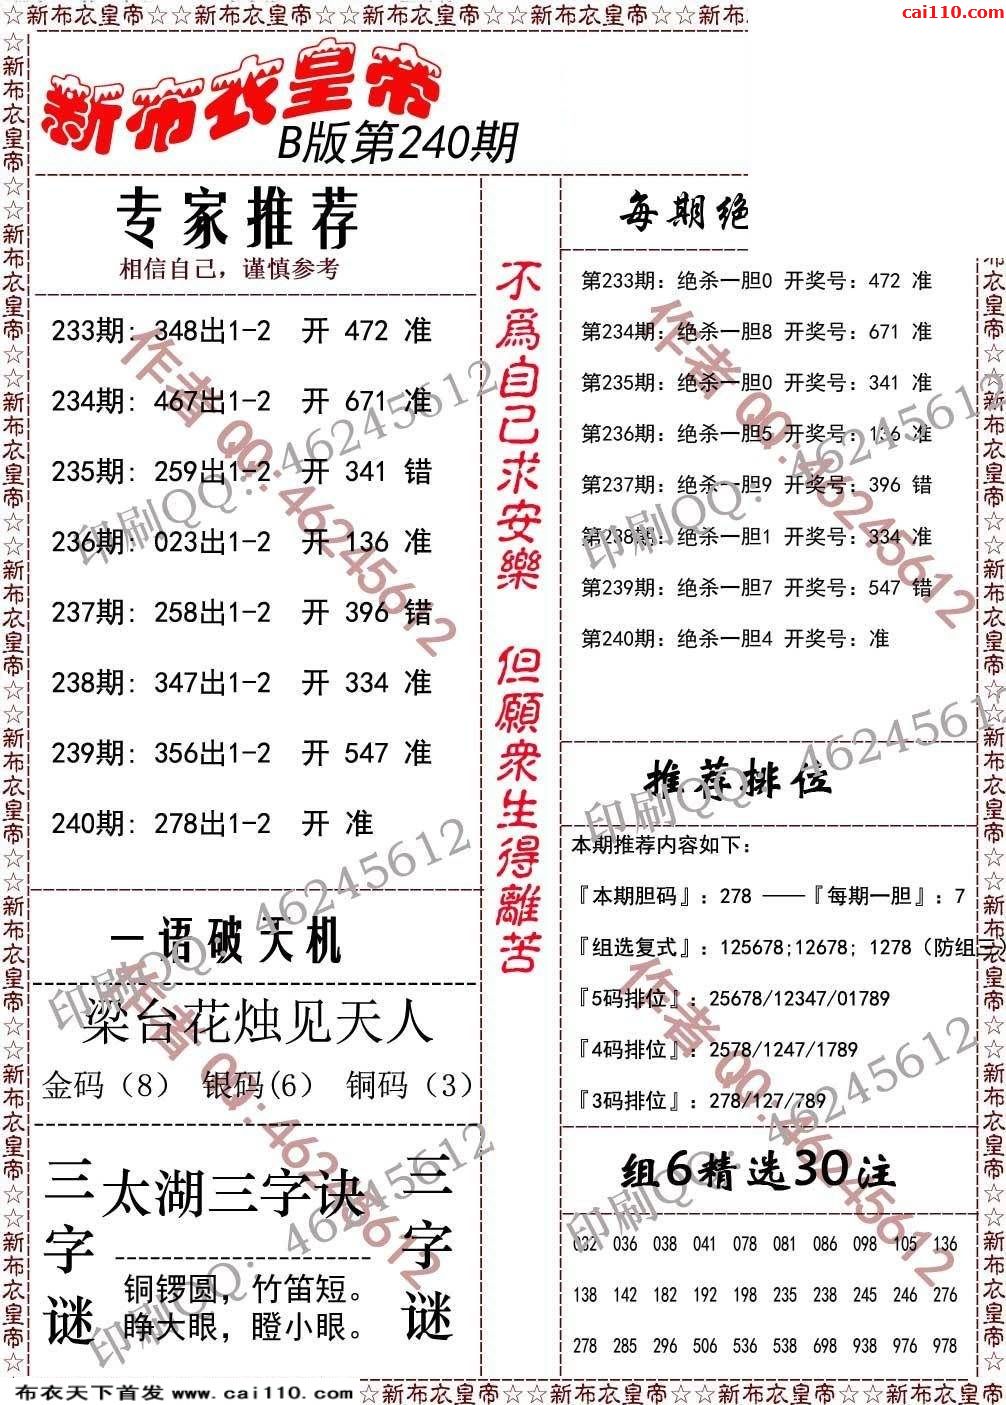 ☆新布衣皇帝☆☆新布衣皇帝☆☆新布衣皇帝☆☆新布衣皇帝☆☆新布
cai110.com
新布衣皇帝
B版第240期
专家推荐
相信自己，谨慎参考
233期: 348出1-2 开 472 准
234期: 467出1-2 开 671 准
235期: 259出1-2 开 341 错
236期: 023出1-2 开 136 准
237期: 258出1-2 开 396 错
238期: 347出1-2 开 334 准
239期: 356出1-2 开 547 准
240期: 278出1-2 开 准
一语破天机
梁台花烛见天人
金码（8） 银码(6） 铜码（3）
三字谜
太湖三字诀
铜锣圆，竹笛短。
睁大眼，瞪小眼。
三字谜
不爲自己求安樂 但願衆生得離苦
每期绝
第233期: 绝杀一胆0 开奖号: 472 准
第234期: 绝杀一胆8 开奖号: 671 准
第235期: 绝杀一胆0 开奖号: 341 准
第236期: 绝杀一胆5 开奖号: 136 准
第237期: 绝杀一胆9 开奖号: 396 错
第238期: 绝杀一胆1 开奖号: 334 准
第239期: 绝杀一胆7 开奖号: 547 错
第240期: 绝杀一胆4 开奖号: 准
推荐排位
本期推荐内容如下:
『本期胆码』: 278 ——『每期一胆』: 7
『组选复式』: 125678;12678; 1278（防组三）
『5码排位』: 25678/12347/01789
『4码排位』: 2578/1247/1789
『3码排位』: 278/127/789
组6精选30注
032 036 038 041 078 081 086 098 105 136
138 142 182 192 198 235 238 245 246 276
278 285 296 506 536 538 698 938 976 978
作者 QQ:46245612
作者 QQ:46245612
作者 QQ:46245612
作者 QQ:46245612
印刷QQ: 46245612
印刷QQ: 46245612
印刷QQ: 46245612
印刷QQ: 46245612
印刷QQ: 46245612
印刷QQ: 46245612
☆新布衣皇帝☆☆新布衣皇帝☆☆新布衣皇帝☆☆新布衣皇帝☆☆新布衣皇帝☆☆新布衣皇帝☆☆新布衣皇帝☆☆新布衣皇帝☆
布衣皇帝☆☆新布衣皇帝☆☆新布衣皇帝☆☆新布衣皇帝☆☆新布衣皇帝☆☆新布衣皇帝☆☆新布衣皇帝☆
布衣天下首发 www.cai110.com
☆新布衣皇帝☆☆新布衣皇帝☆☆新布衣皇帝☆☆新布衣皇帝☆